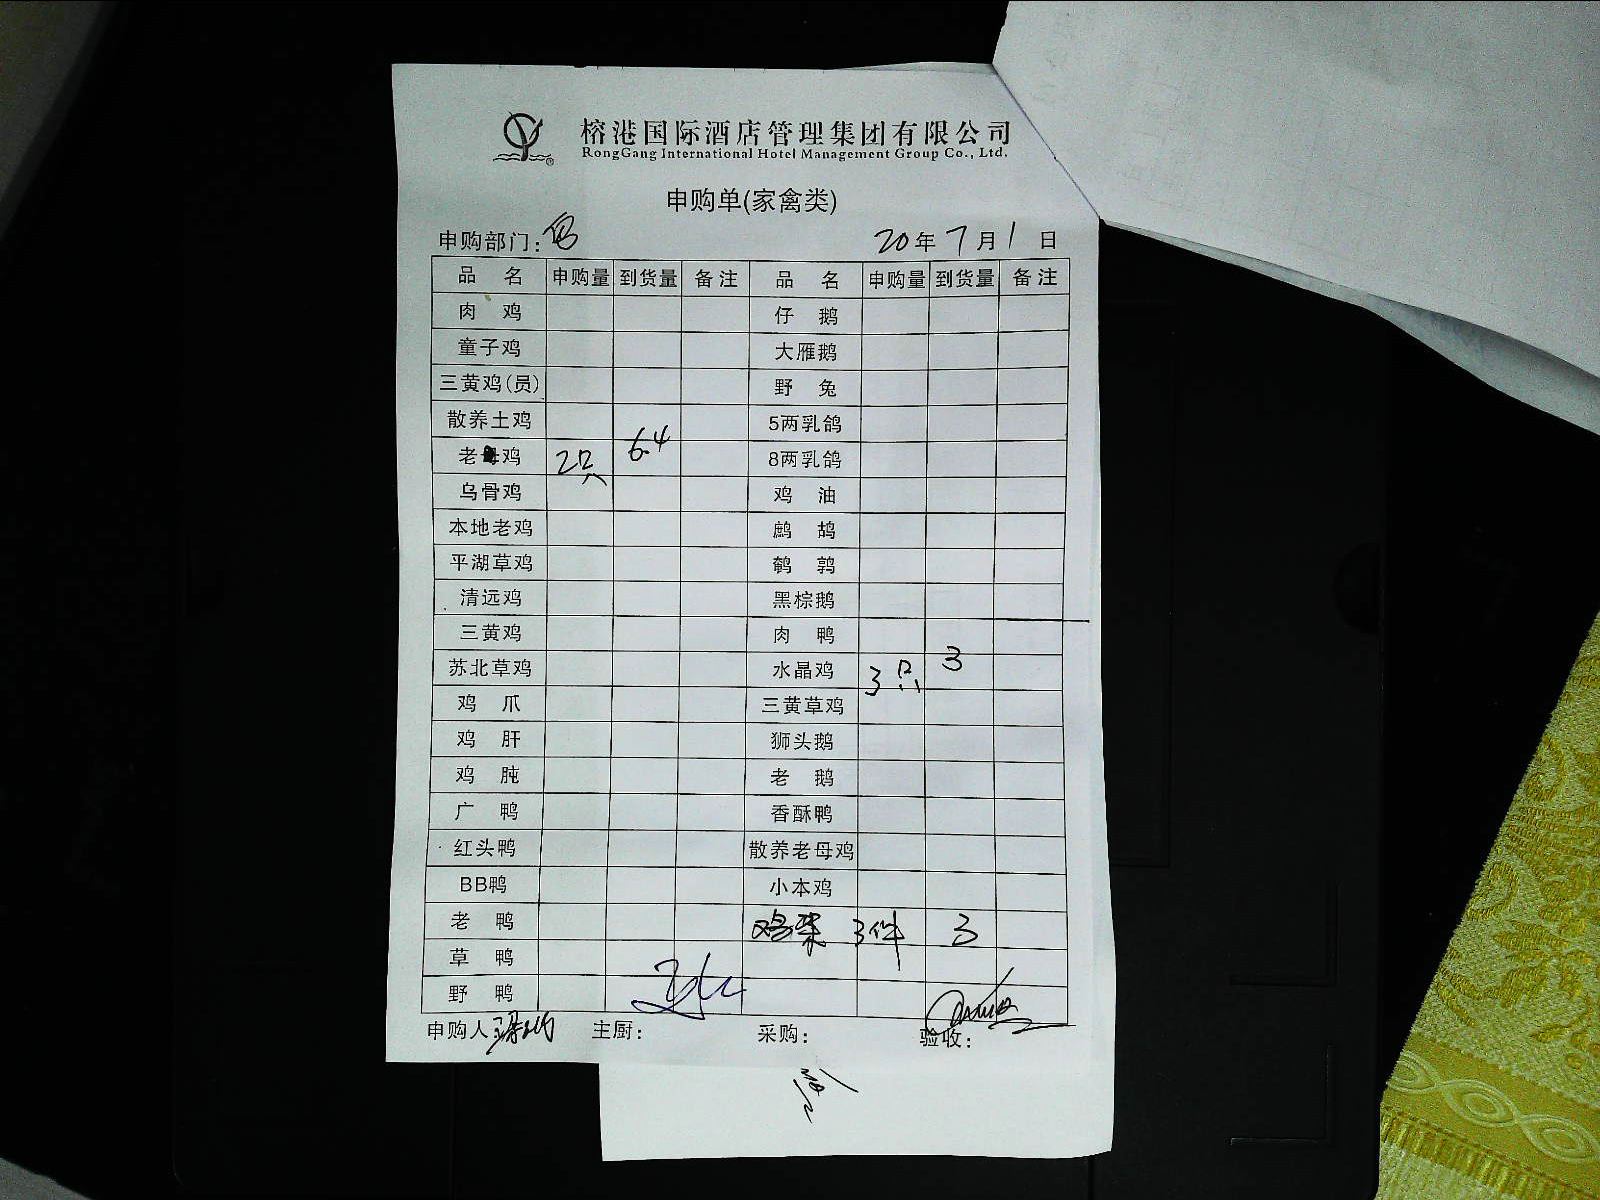 榕港国际酒店管理集团有限公司
RongGang International Hotel Management Group Co., Ltd.
申购单(家禽类)
申购部门: 20年7月1日
品 名 申购量 到货量 备注 品 名 申购量 到货量 备注
肉 鸡 仔 鹅
童子鸡 大雁鹅
三黄鸡(员) 野 兔
散养土鸡 5两乳鸽
老母鸡 2只 6.4 8两乳鸽
乌骨鸡 鸡 油
本地老鸡 鹧 鸪
平湖草鸡 鹌 鹑
清远鸡 黑棕鹅
三黄鸡 肉 鸭
苏北草鸡 水晶鸡 3只 3
鸡 爪 三黄草鸡
鸡 肝 狮头鹅
鸡 肫 老 鹅
广 鸭 香酥鸭
红头鸭 散养老母鸡
BB鸭 小本鸡
老 鸭 鸡 3件 3
草 鸭
野 鸭
申购人: 主厨: 采购: 验收: